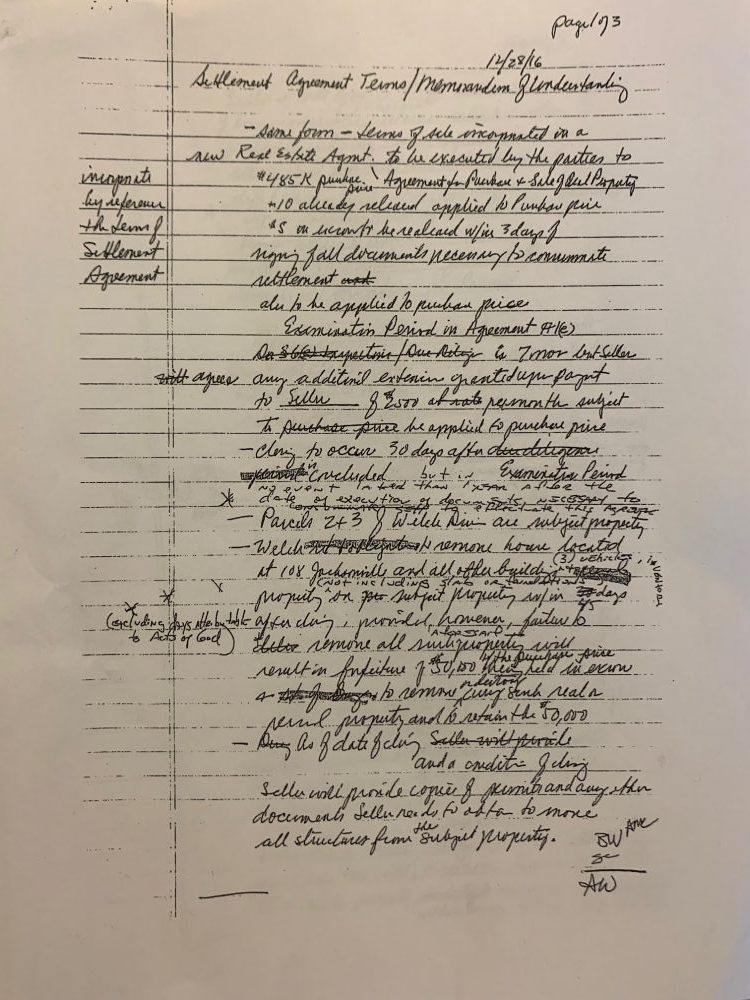 page 1 of 3
12/28/16
Settlement Agreement Terms/Memorandum of Understanding
- same form - terms of sale incorporated in a
new Real Estate Agmt. to be executed by the parties to
incorporate
by reference
the terms of
Settlement
Agreement
$485K purchase price Agreement for Purchase & Sale of Real Property
$10 already released applied to Purchase price
$5 in escrow to be realeased w/in 3 days of
signing of all documents necessary to consummate
settlement and
also to be applied to purchase price
Examination Period in Agreement
Inspections/Due Dilig is 7 mos but Seller
will agrees any additional extension granted upon paymt
to Seller of $2500 at rate per month subject
to purchase price be applied to purchase price
- closing to occur 30 days after due diligence
concluded but in Examination Period
no event later than after the
* date of execution of documents necessary to
consummate
- Parcels 2 + 3 of Welch Div are subject property
- Welch to remove house located
at 108 Jacksonville and all other buildings (3) vehicles,
(not including slab or foundations
property on subject property w/in 45 days
(excluding days attributable
to Acts of God)
after closing, provided, however, failure to
remove all such property will
result in forfeiture of $50,000 of the Purchase price held in escrow
to remove any such real or
personal property and to retain the $50,000
- As of date of closing Seller will provide
and a condition of closing
Seller will provide copies of permits and any other
documents Seller needs to obtain to move
all structures from the subject property.
BW
AW